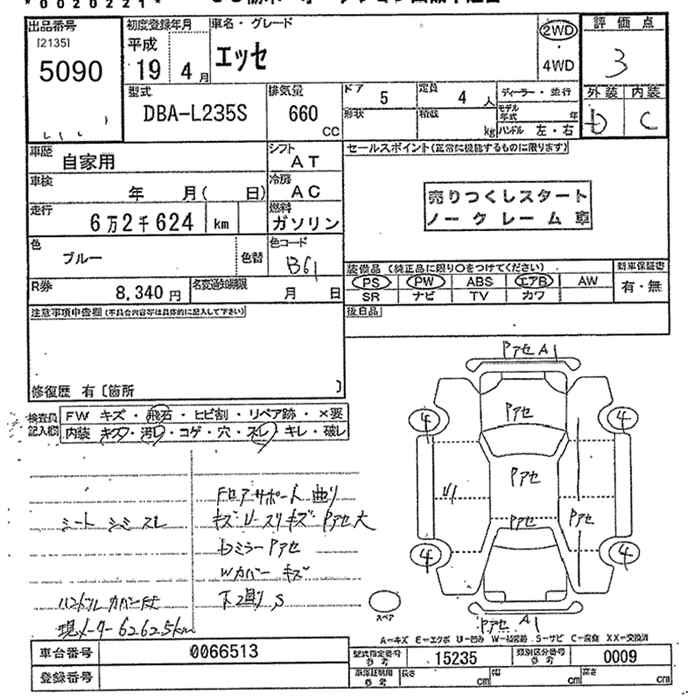 *0020221*
出品番号
[2135]
5090
初度登録年月
平成
19年 4月
車名・グレード
エッセ
2WD
・
4WD
評価点
3
外装 内装
D C
型式
DBA-L235S
排気量
660
CC
ドア
5
定員
4人
形状
積載
kg
ディーラー・並行
モデル年式 年
ハンドル 左・右
車歴
自家用
シフト
AT
車検
年 月( 日)
冷房
AC
走行
6万2千624 km
燃料
ガソリン
色
ブルー
色替
色コード
B61
R券
8,340円
名変通知期限
月 日
セールスポイント(正常に機能するものに限ります)
売りつくしスタート
ノークレーム車
装備品(純正品に限り○をつけてください)
PS PW ABS エアB AW
SR ナビ TV カワ
新車保証書
有・無
後日品
注意事項申告欄(不具合内容等は具体的に記入して下さい)
修復歴 有〔箇所 〕
検査員記入欄
FW キズ・飛石・ヒビ割・リペア跡・×要
内装 キズ・汚レ・コゲ・穴・スレ・キレ・破レ
シート シミ スレ
ハンドルカバー付
現メーター62625km
フロアサポート曲り
キズUスリキズPアセ大
Dミラー Pアセ
Wカバー キズ
下廻りS
Pアセ A1
Pアセ
4 4
Pアセ
U1
Pアセ
Pアセ
4 4
Pアセ A1
スペア
A-キズ E-エクボ U-凹み W-補修跡 S-サビ C-腐食 XX-交換済
車台番号
0066513
登録番号
型式指定番号
参考
15235
類別区分番号
参考
0009
車庫証明用
参考
長さ cm
幅 cm
高さ cm